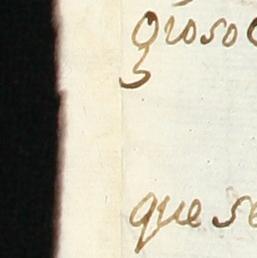 groso
que se